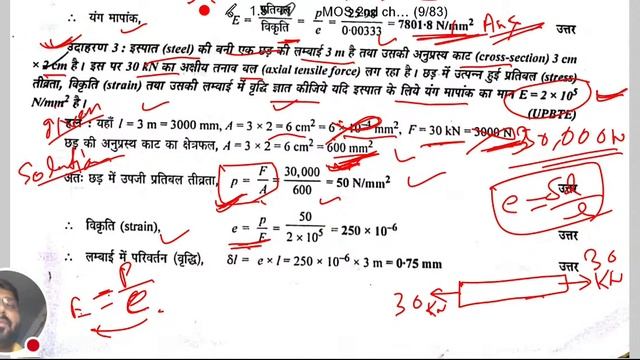 प्रतिबल
∴ यंग मापांक, E = प्रतिबल/विकृति = p/e = /0·00333 = 7801·8 N/mm² Ans उत्तर
MOS 2nd ch... (9/83)
उदाहरण 3 : इस्पात (steel) की बनी एक छड़ की लम्बाई 3 m है तथा उसकी अनुप्रस्थ काट (cross-section) 3 cm
× 2 cm है। इस पर 30 kN का अक्षीय तनाव बल (axial tensile force) लग रहा है। छड़ में उत्पन्न हुई प्रतिबल (stress)
तीव्रता, विकृति (strain) तथा उसकी लम्बाई में वृद्धि ज्ञात कीजिये यदि इस्पात के लिये यंग मापांक का मान E = 2 × 10⁵
N/mm² है।
(UPBTE)
given
हल : यहाँ l = 3 m = 3000 mm, A = 3 × 2 = 6 cm² = 6 × 10⁻⁴ mm², F = 30 kN = 3000 N
30,000N
छड़ की अनुप्रस्थ काट का क्षेत्रफल, A = 3 × 2 = 6 cm² = 600 mm²
Solution
अतः छड़ में उपजी प्रतिबल तीव्रता, p = F/A = 30,000/600 = 50 N/mm² उत्तर
e = δl/l
∴ विकृति (strain), e = p/E = 50/2 × 10⁵ = 250 × 10⁻⁶ उत्तर
∴ लम्बाई में परिवर्तन (वृद्धि), δl = e × l = 250 × 10⁻⁶ × 3 m = 0·75 mm उत्तर
E = p/e
30 KN
30 KN